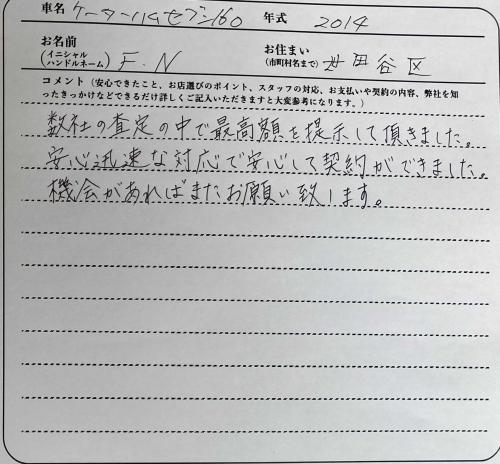 車名 ケーターハムセブン160 年式 2014
お名前 (イニシャル ハンドルネーム) F.N お住まい (市町村名まで) 世田谷区
コメント(安心できたこと、お店選びのポイント、スタッフの対応、お支払いや契約の内容、弊社を知
ったきっかけなどできるだけ詳しくご記入いただきますと大変参考になります。)
数社の査定の中で最高額を提示して頂きました。
安心迅速な対応で安心して契約ができました。
機会があればまたお願い致します。